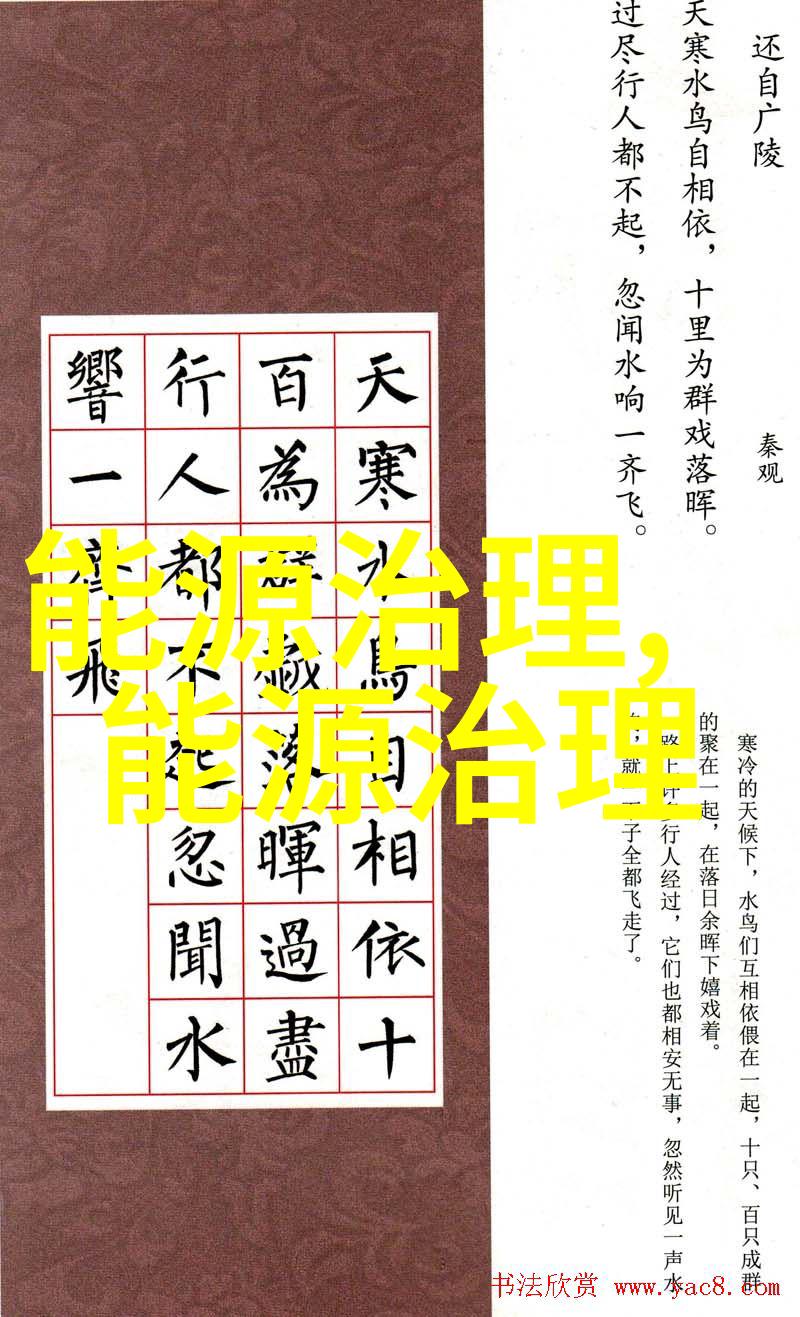 还自广陵
秦观
天寒水鸟自相依，十里为群戏落晖。
过尽行人都不起，忽闻水响一齐飞。
天寒水鳥自相依十
百為群戲落暉過盡
行人都不起忽聞水
響一齊飛
能源治理，
能源治理
寒冷的天候下，水鸟们互相依偎在一起，十只、百只成群
的聚在一起，在落日余晖下嬉戏着。
路上许多行人经过，它们也都相安无事，忽然听见一声水
，就下子全都飞走了。
书法欣赏 www.yac8.com